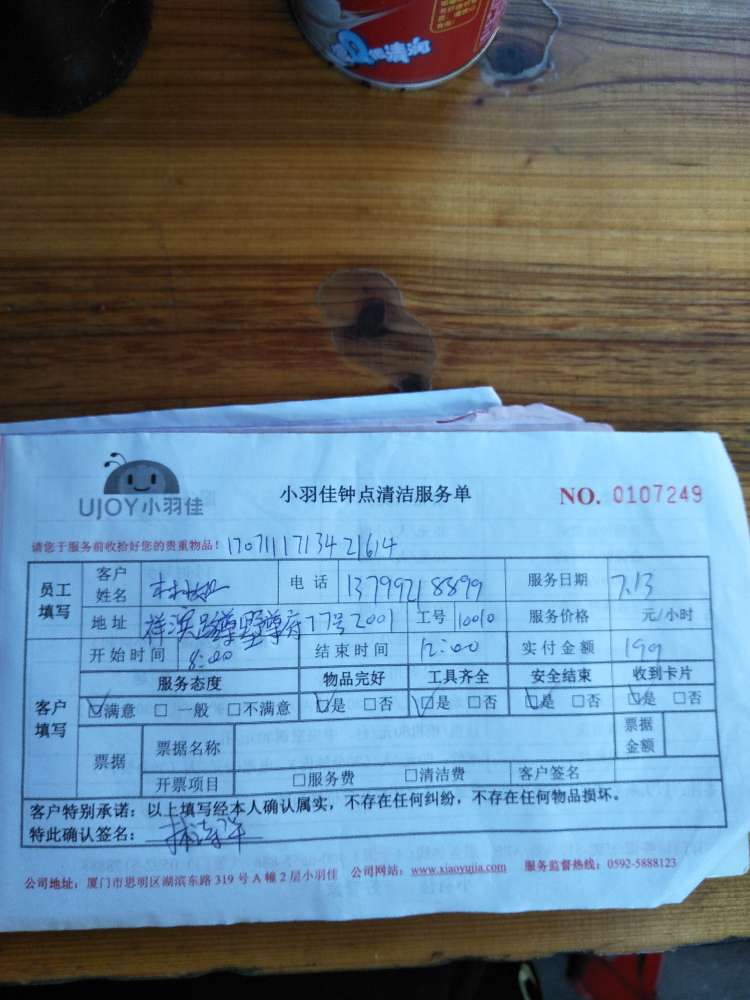 清润
UJOY小羽佳
小羽佳钟点清洁服务单
NO. 0107249
请您于服务前收拾好您的贵重物品! 1707111713421614
员工填写 客户姓名 电话 13799218899 服务日期 7.13
地址 77号2001 工号 10010 服务价格 元/小时
客户填写 开始时间 8:00 结束时间 12:00 实付金额 199
服务态度 物品完好 工具齐全 安全结束 收到卡片
☑满意 □一般 □不满意 ☑是 □否 ☑是 □否 ☑是 □否 ☑是 □否
票据 票据名称 票据金额
开票项目 □服务费 □清洁费 客户签名
客户特别承诺:以上填写经本人确认属实,不存在任何纠纷,不存在任何物品损坏。
特此确认签名:
公司地址:厦门市思明区湖滨东路 319 号 A 幢 2 层小羽佳 公司网站:www.xiaoyujia.com 服务监督热线:0592-5888123